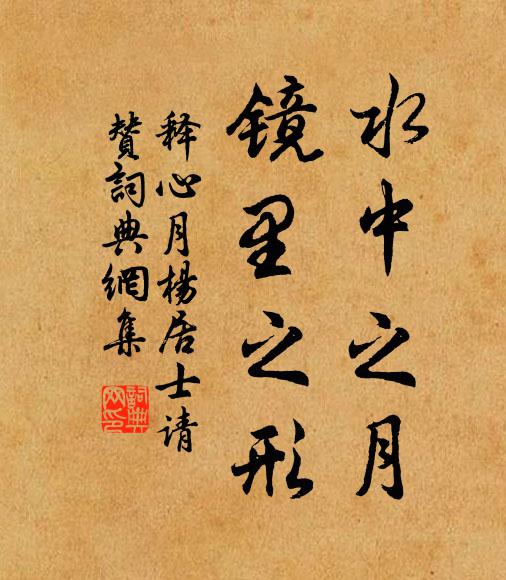 水中之月
镜里之形
释心月杨居士请
赞词典網集
詞典網印